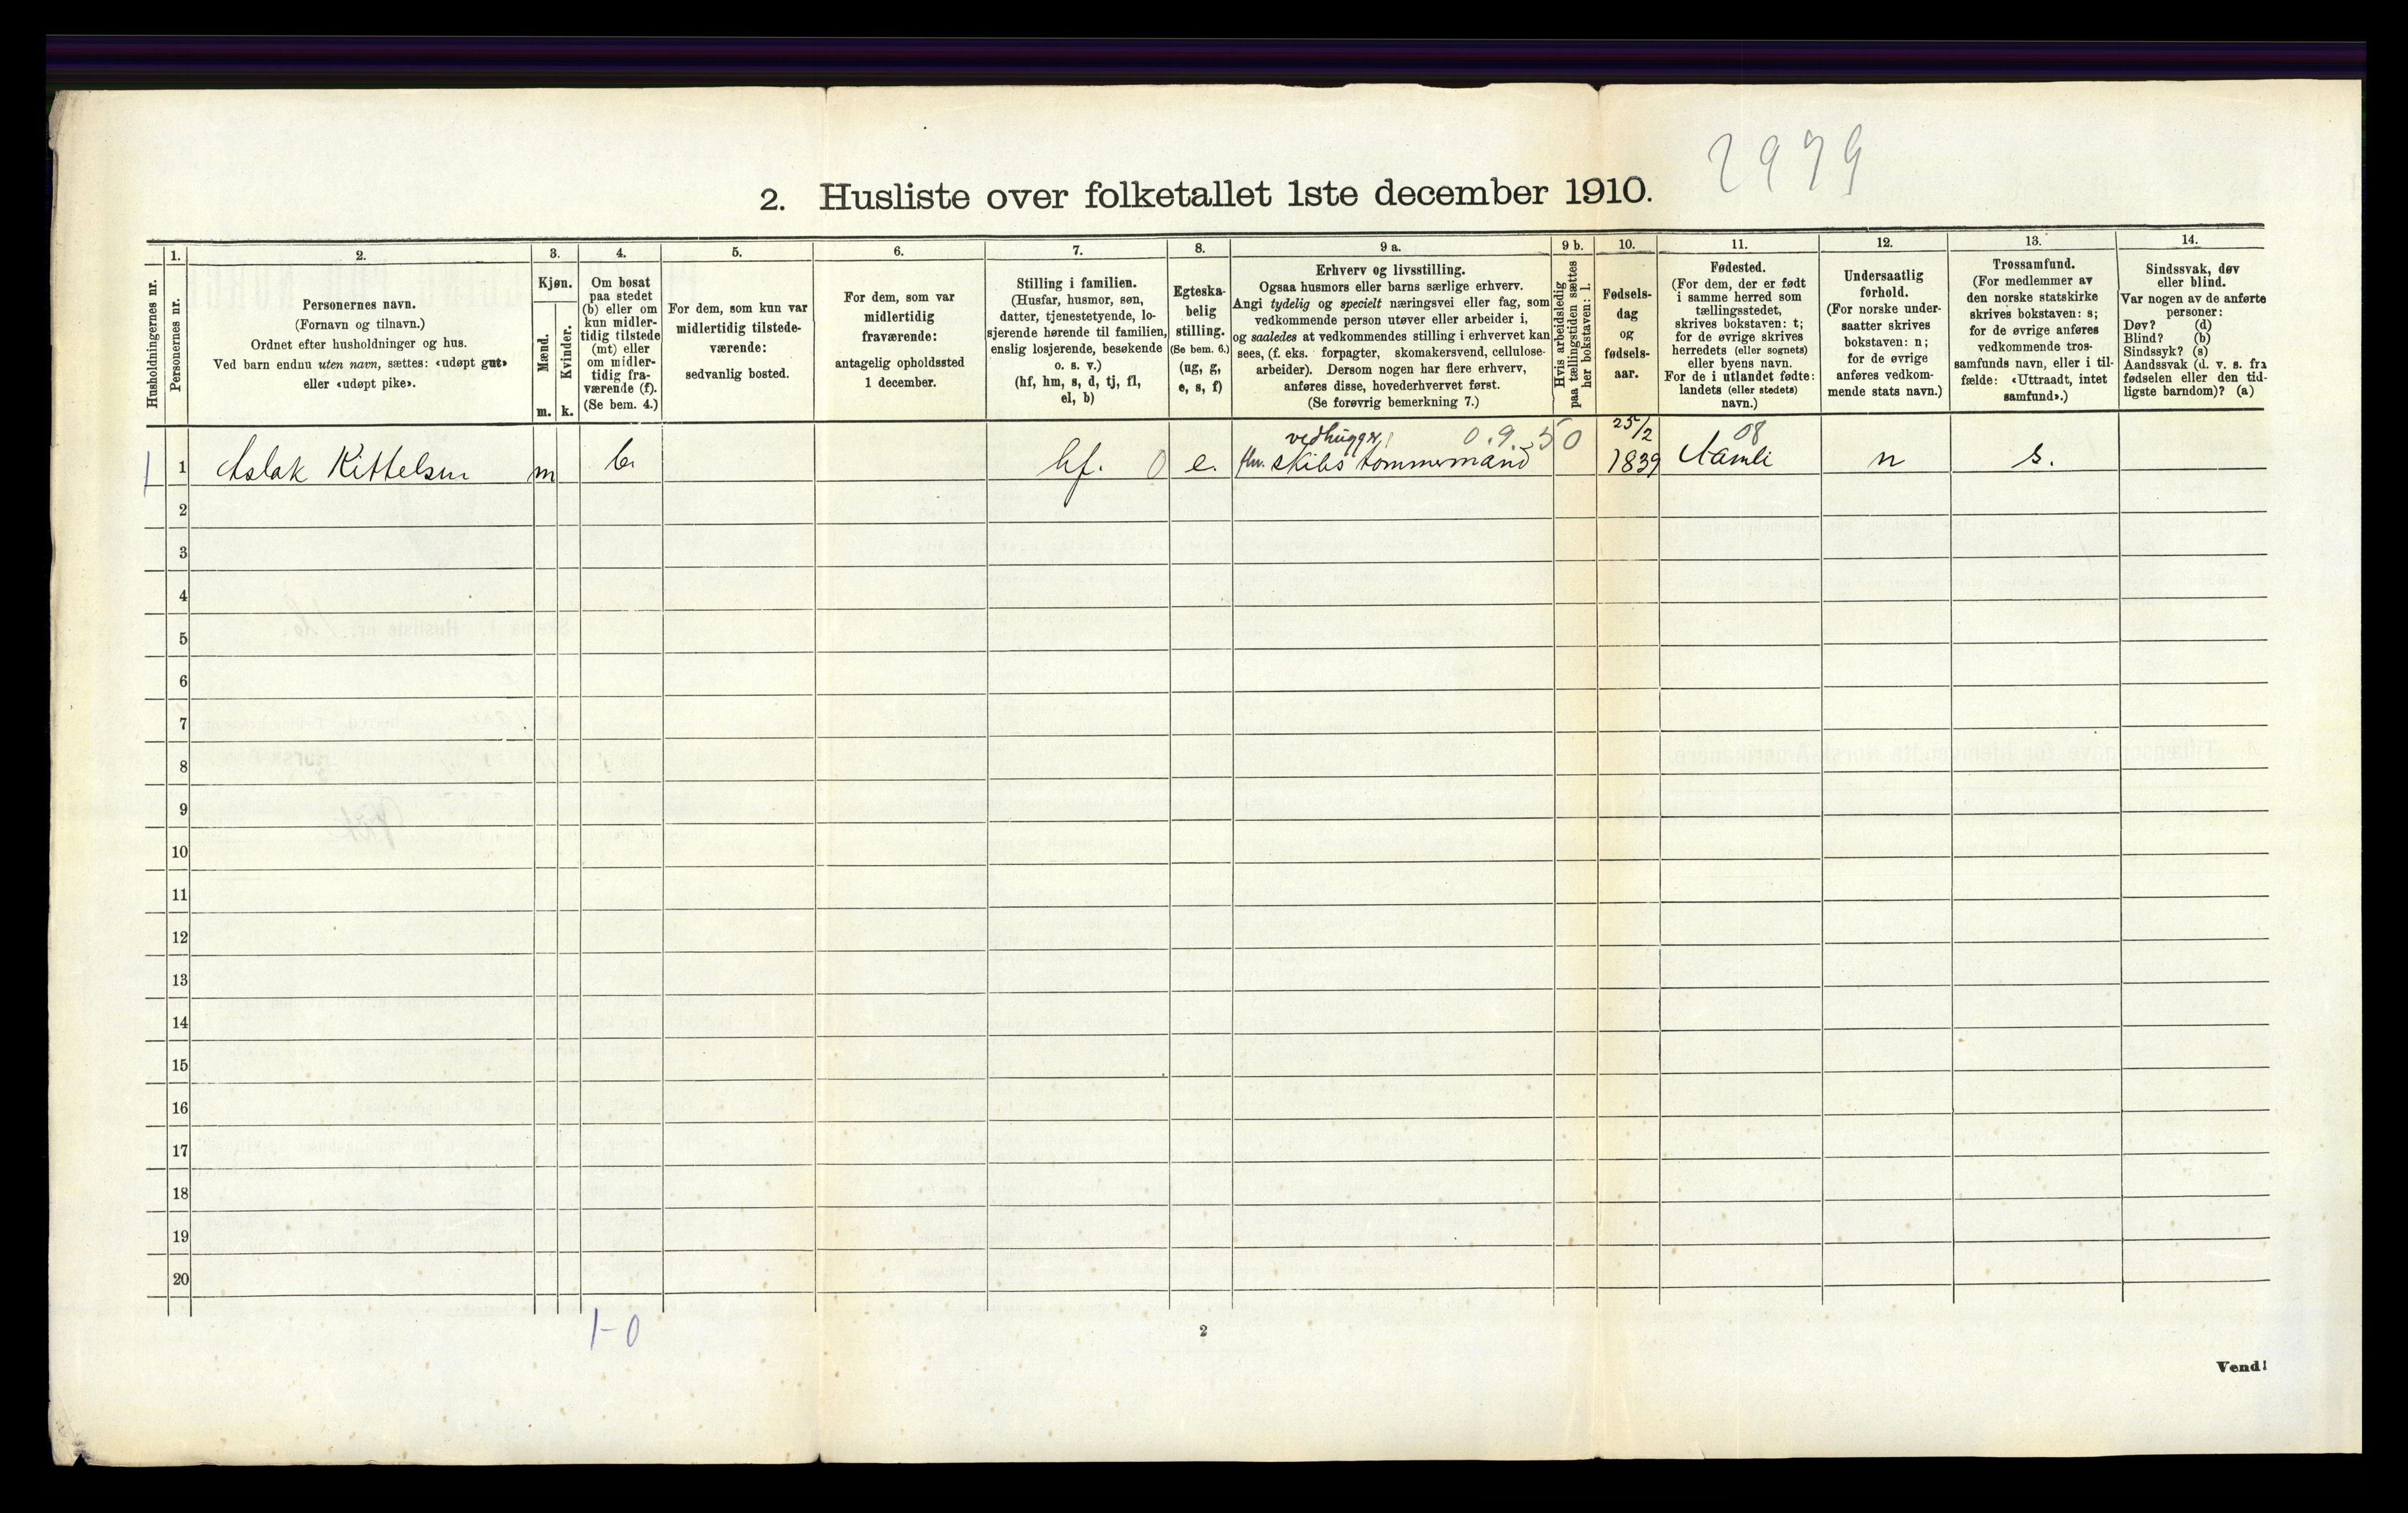 2979
2. Husliste over folketallet 1ste december 1910.
Husholdningernes nr.
1.
Personernes nr.
2.
Personernes navn.
(Fornavn og tilnavn.)
Ordnet efter husholdninger og hus.
Ved barn endnu uten navn, sættes: «udøpt gut»
eller «udøpt pike».
3.
Kjøn.
Mænd.
m.
Kvinder.
k.
4.
Om bosat
paa stedet
(b) eller om
kun midler-
tidig tilstede
(mt) eller
om midler-
tidig fra-
værende (f).
(Se bem. 4.)
5.
For dem, som kun var
midlertidig tilstede-
værende:
sedvanlig bosted.
6.
For dem, som var
midlertidig
fraværende:
antagelig opholdssted
1 december.
7.
Stilling i familien.
(Husfar, husmor, søn,
datter, tjenestetyende, lo-
sjerende hørende til familien,
enslig losjerende, besøkende
o. s. v.)
(hf, hm, s, d, tj, fl,
el, b)
8.
Egteska-
belig
stilling.
(Se bem. 6.)
(ug, g,
e, s, f)
9 a.
Erhverv og livsstilling.
Ogsaa husmors eller barns særlige erhverv.
Angi tydelig og specielt næringsvei eller fag, som
vedkommende person utøver eller arbeider i,
og saaledes at vedkommendes stilling i erhvervet kan
sees, (f. eks. forpagter, skomakersvend, cellulose-
arbeider). Dersom nogen har flere erhverv,
anføres disse, hovederhvervet først.
(Se forøvrig bemerkning 7.)
9 b.
Hvis arbeidsledig
paa tællingstiden sættes
her bokstaven: l.
10.
Fødsels-
dag
og
fødsels-
aar.
11.
Fødested.
(For dem, der er født
i samme herred som
tællingsstedet,
skrives bokstaven: t;
for de øvrige skrives
herredets (eller sognets)
eller byens navn.
For de i utlandet fødte:
landets (eller stedets)
navn.)
12.
Undersaatlig
forhold.
(For norske under-
saatter skrives
bokstaven: n;
for de øvrige
anføres vedkom-
mende stats navn.)
13.
Trossamfund.
(For medlemmer av
den norske statskirke
skrives bokstaven: s;
for de øvrige anføres
vedkommende tros-
samfunds navn, eller i til-
fælde: «Uttraadt, intet
samfund».)
14.
Sindssvak, døv
eller blind.
Var nogen av de anførte
personer:
Døv? (d)
Blind? (b)
Sindssyk? (s)
Aandssvak (d. v. s. fra
fødselen eller den tid-
ligste barndom)? (a)
vedhugger 0.9.50 25/2 08
1 1 Aslak Kittelsen m b. hf. 0 e. fhv. skibstømmermand 1839 Aamli n s.
2
3
4
5
6
7
8
9
10
11
12
13
14
15
16
17
18
19
20
1-0
2
Vend!